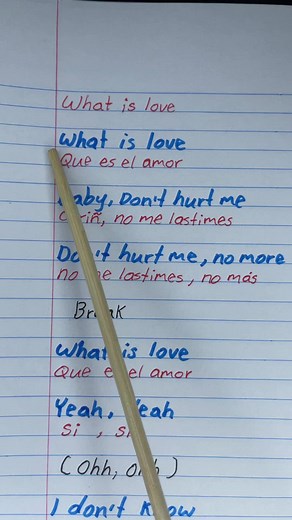 What is love
What is love
Que es el amor
Baby, Don't hurt me
no me lastimes
Don't hurt me, no more
no me lastimes, no más
Break
What is love
Que es el amor
Yeah, Yeah
Si, si
(Ohh, ohh)
I don't know